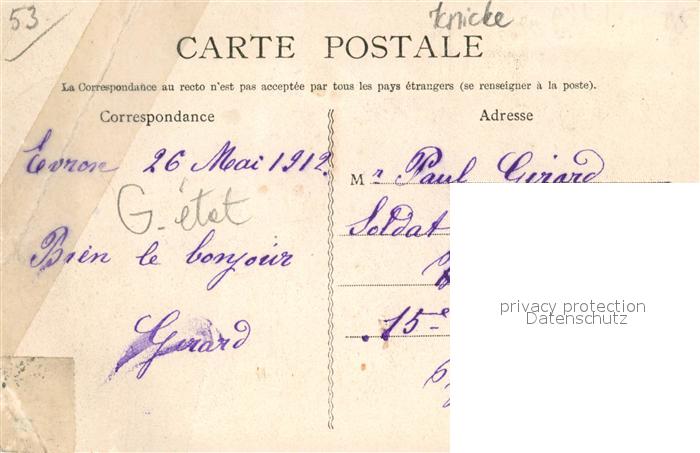 53
CARTE POSTALE
La Correspondance au recto n'est pas acceptée par tous les pays étrangers (se renseigner à la poste).
Correspondance
Evron 26 Mai 1912.
G. état
Bien le bonjour
Girard
Adresse
Mr Paul Girard
Soldat
15e
privacy protection
Datenschutz